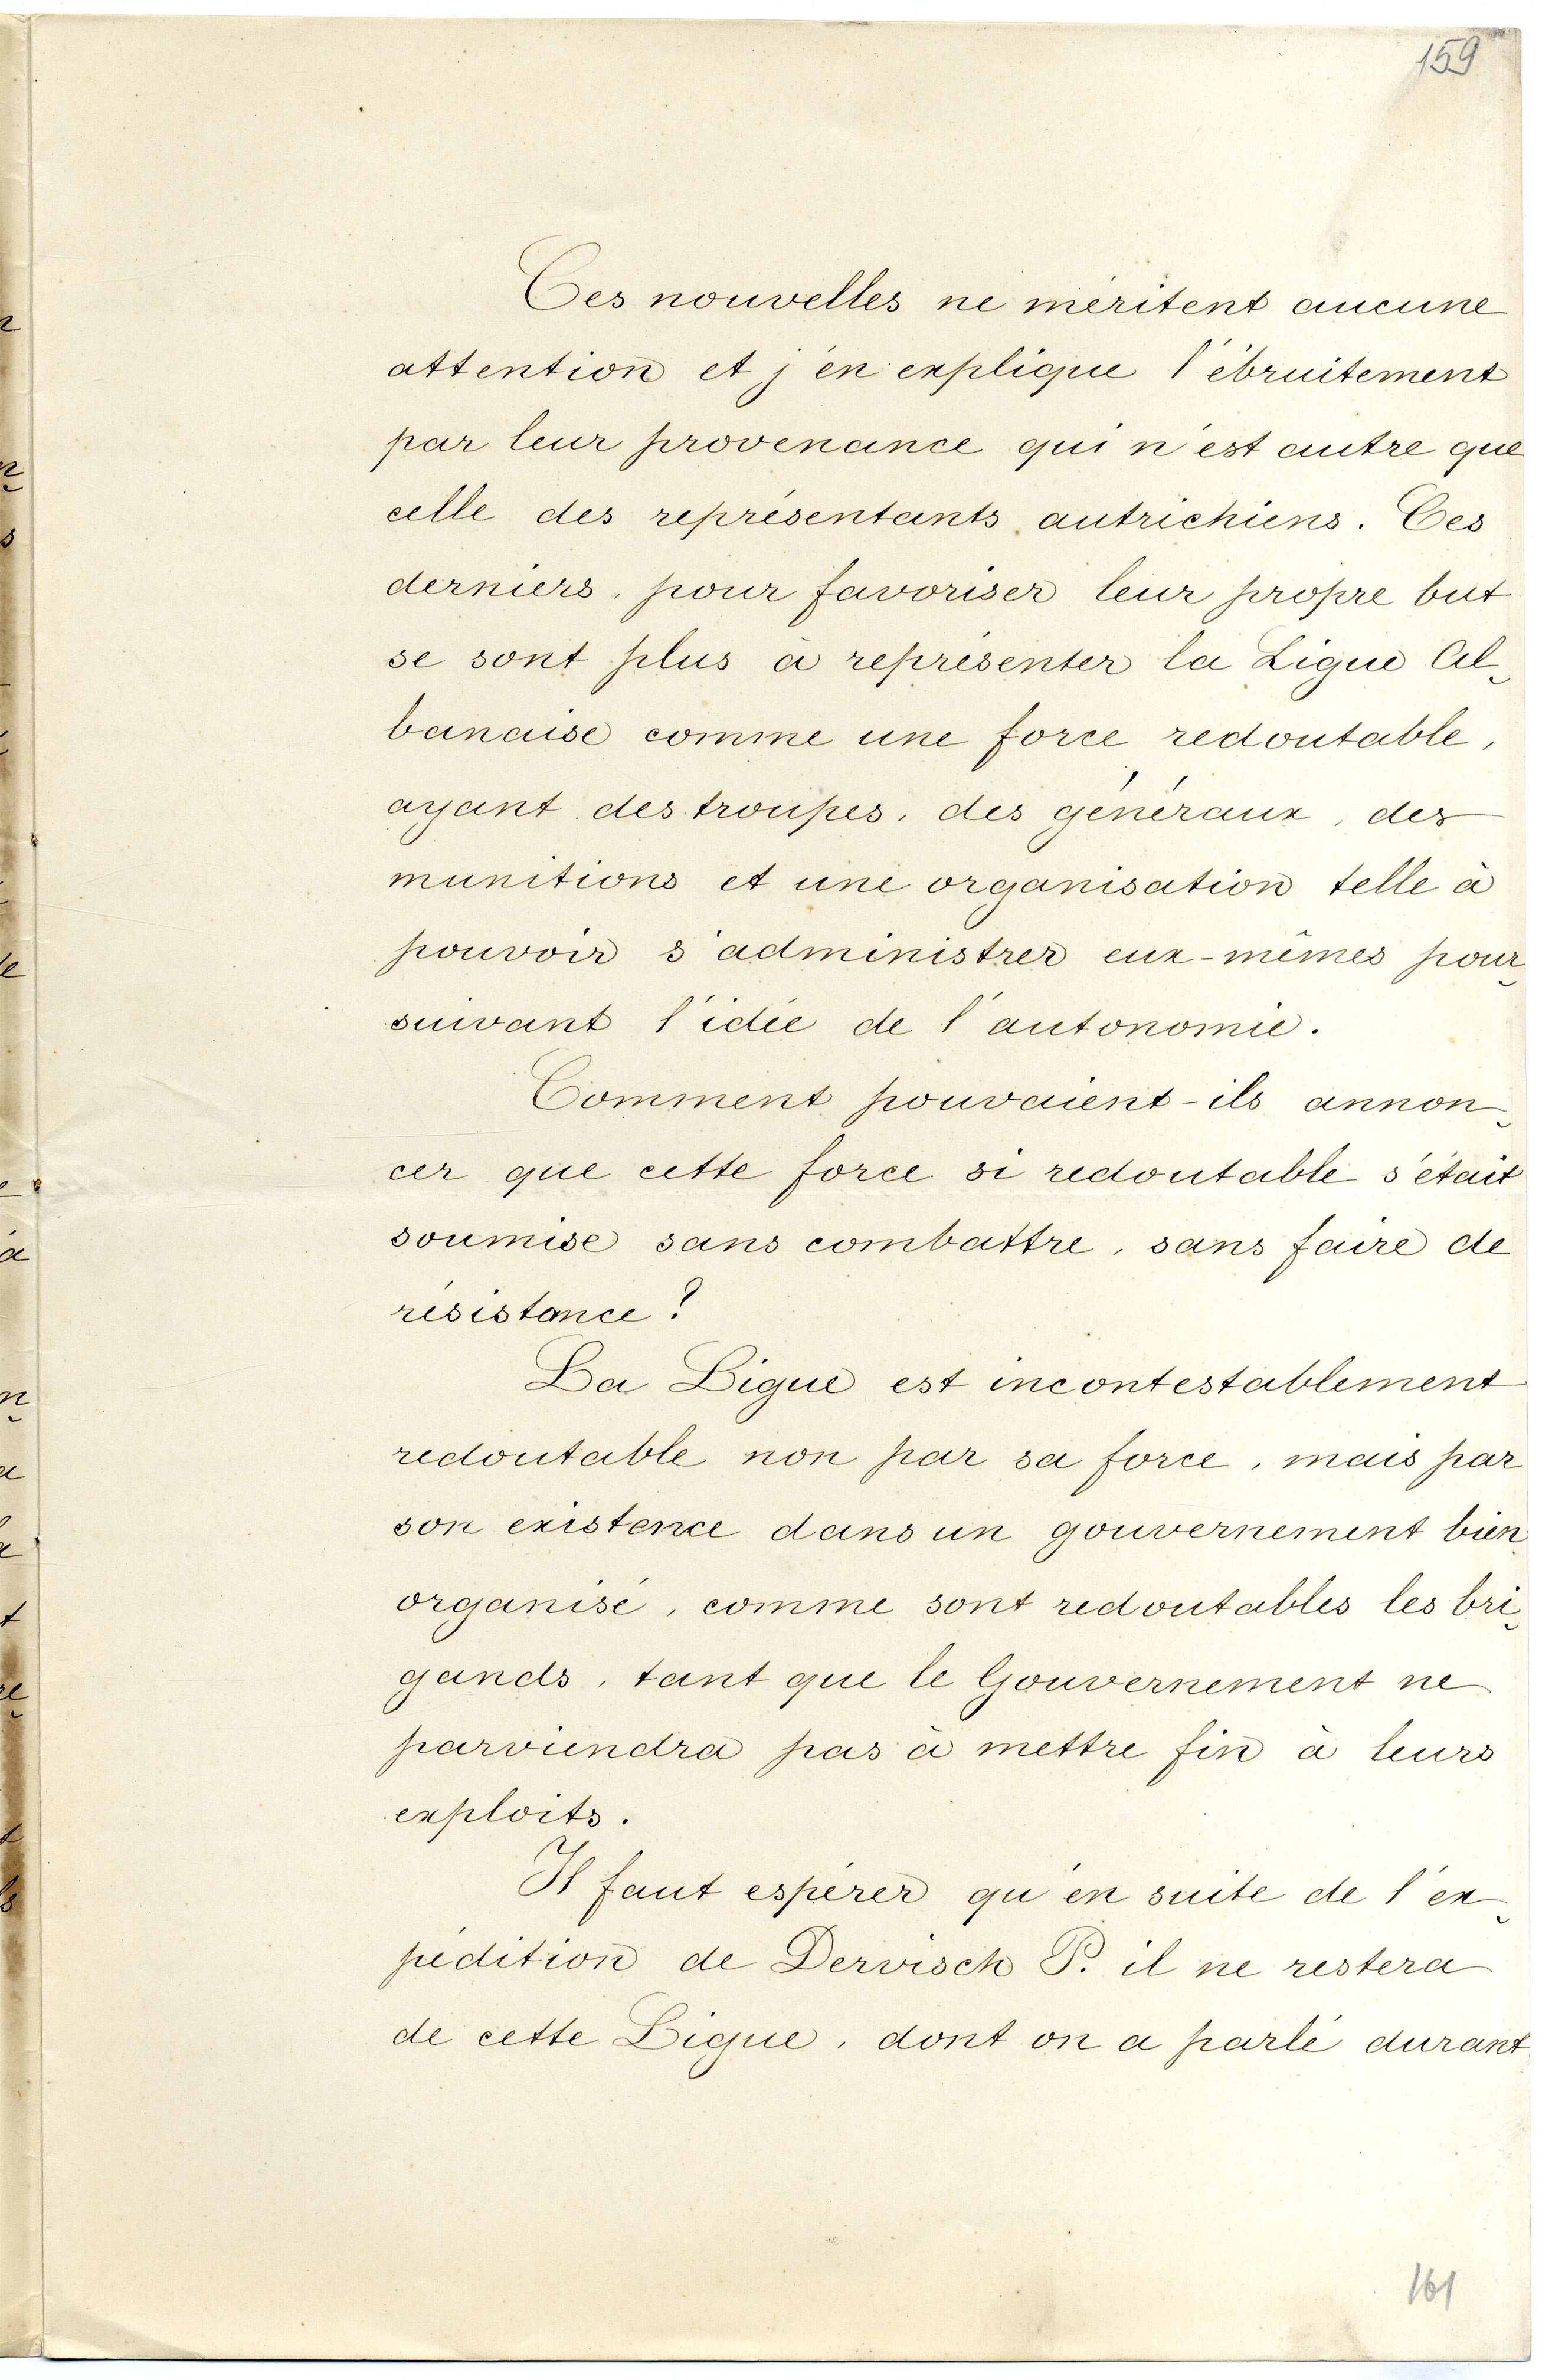 159
Ces nouvelles ne méritent aucune
attention et j'en explique l'ébruitement
par leur provenance qui n'est autre que
celle des représentants autrichiens. Ces
derniers, pour favoriser leur propre but
se sont plus à représenter la Ligue Al-
banaise comme une force redoutable,
ayant des troupes, des généraux, des
munitions et une organisation telle à
pouvoir s'administrer eux-mêmes pour-
suivant l'idée de l'autonomie.
Comment pouvaient-ils annon-
cer que cette force si redoutable s'était
soumise sans combattre, sans faire de
résistance?
La Ligue est incontestablement
redoutable non par sa force, mais par
son existence dans un gouvernement bien
organisé, comme sont redoutables les bri-
gands, tant que le Gouvernement ne
parviendra pas à mettre fin à leurs
exploits.
Il faut espérer qu'en suite de l'ex-
pédition de Dervisch P. il ne restera
de cette Ligue, dont on a parlé durant
161